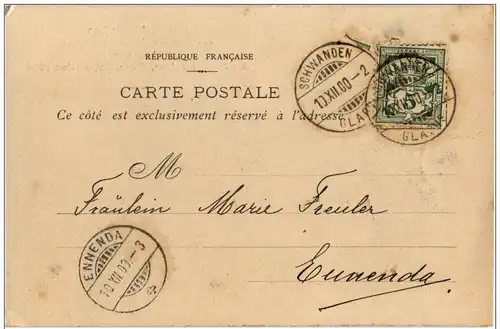 RÉPUBLIQUE FRANÇAISE
CARTE POSTALE
Ce côté est exclusivement réservé à l'adresse
SCHWANDEN
10.XII.00-2
GLARUS
M
Fräulein Marie Freuler
Ennenda
ENNENDA
10.XII.00-3